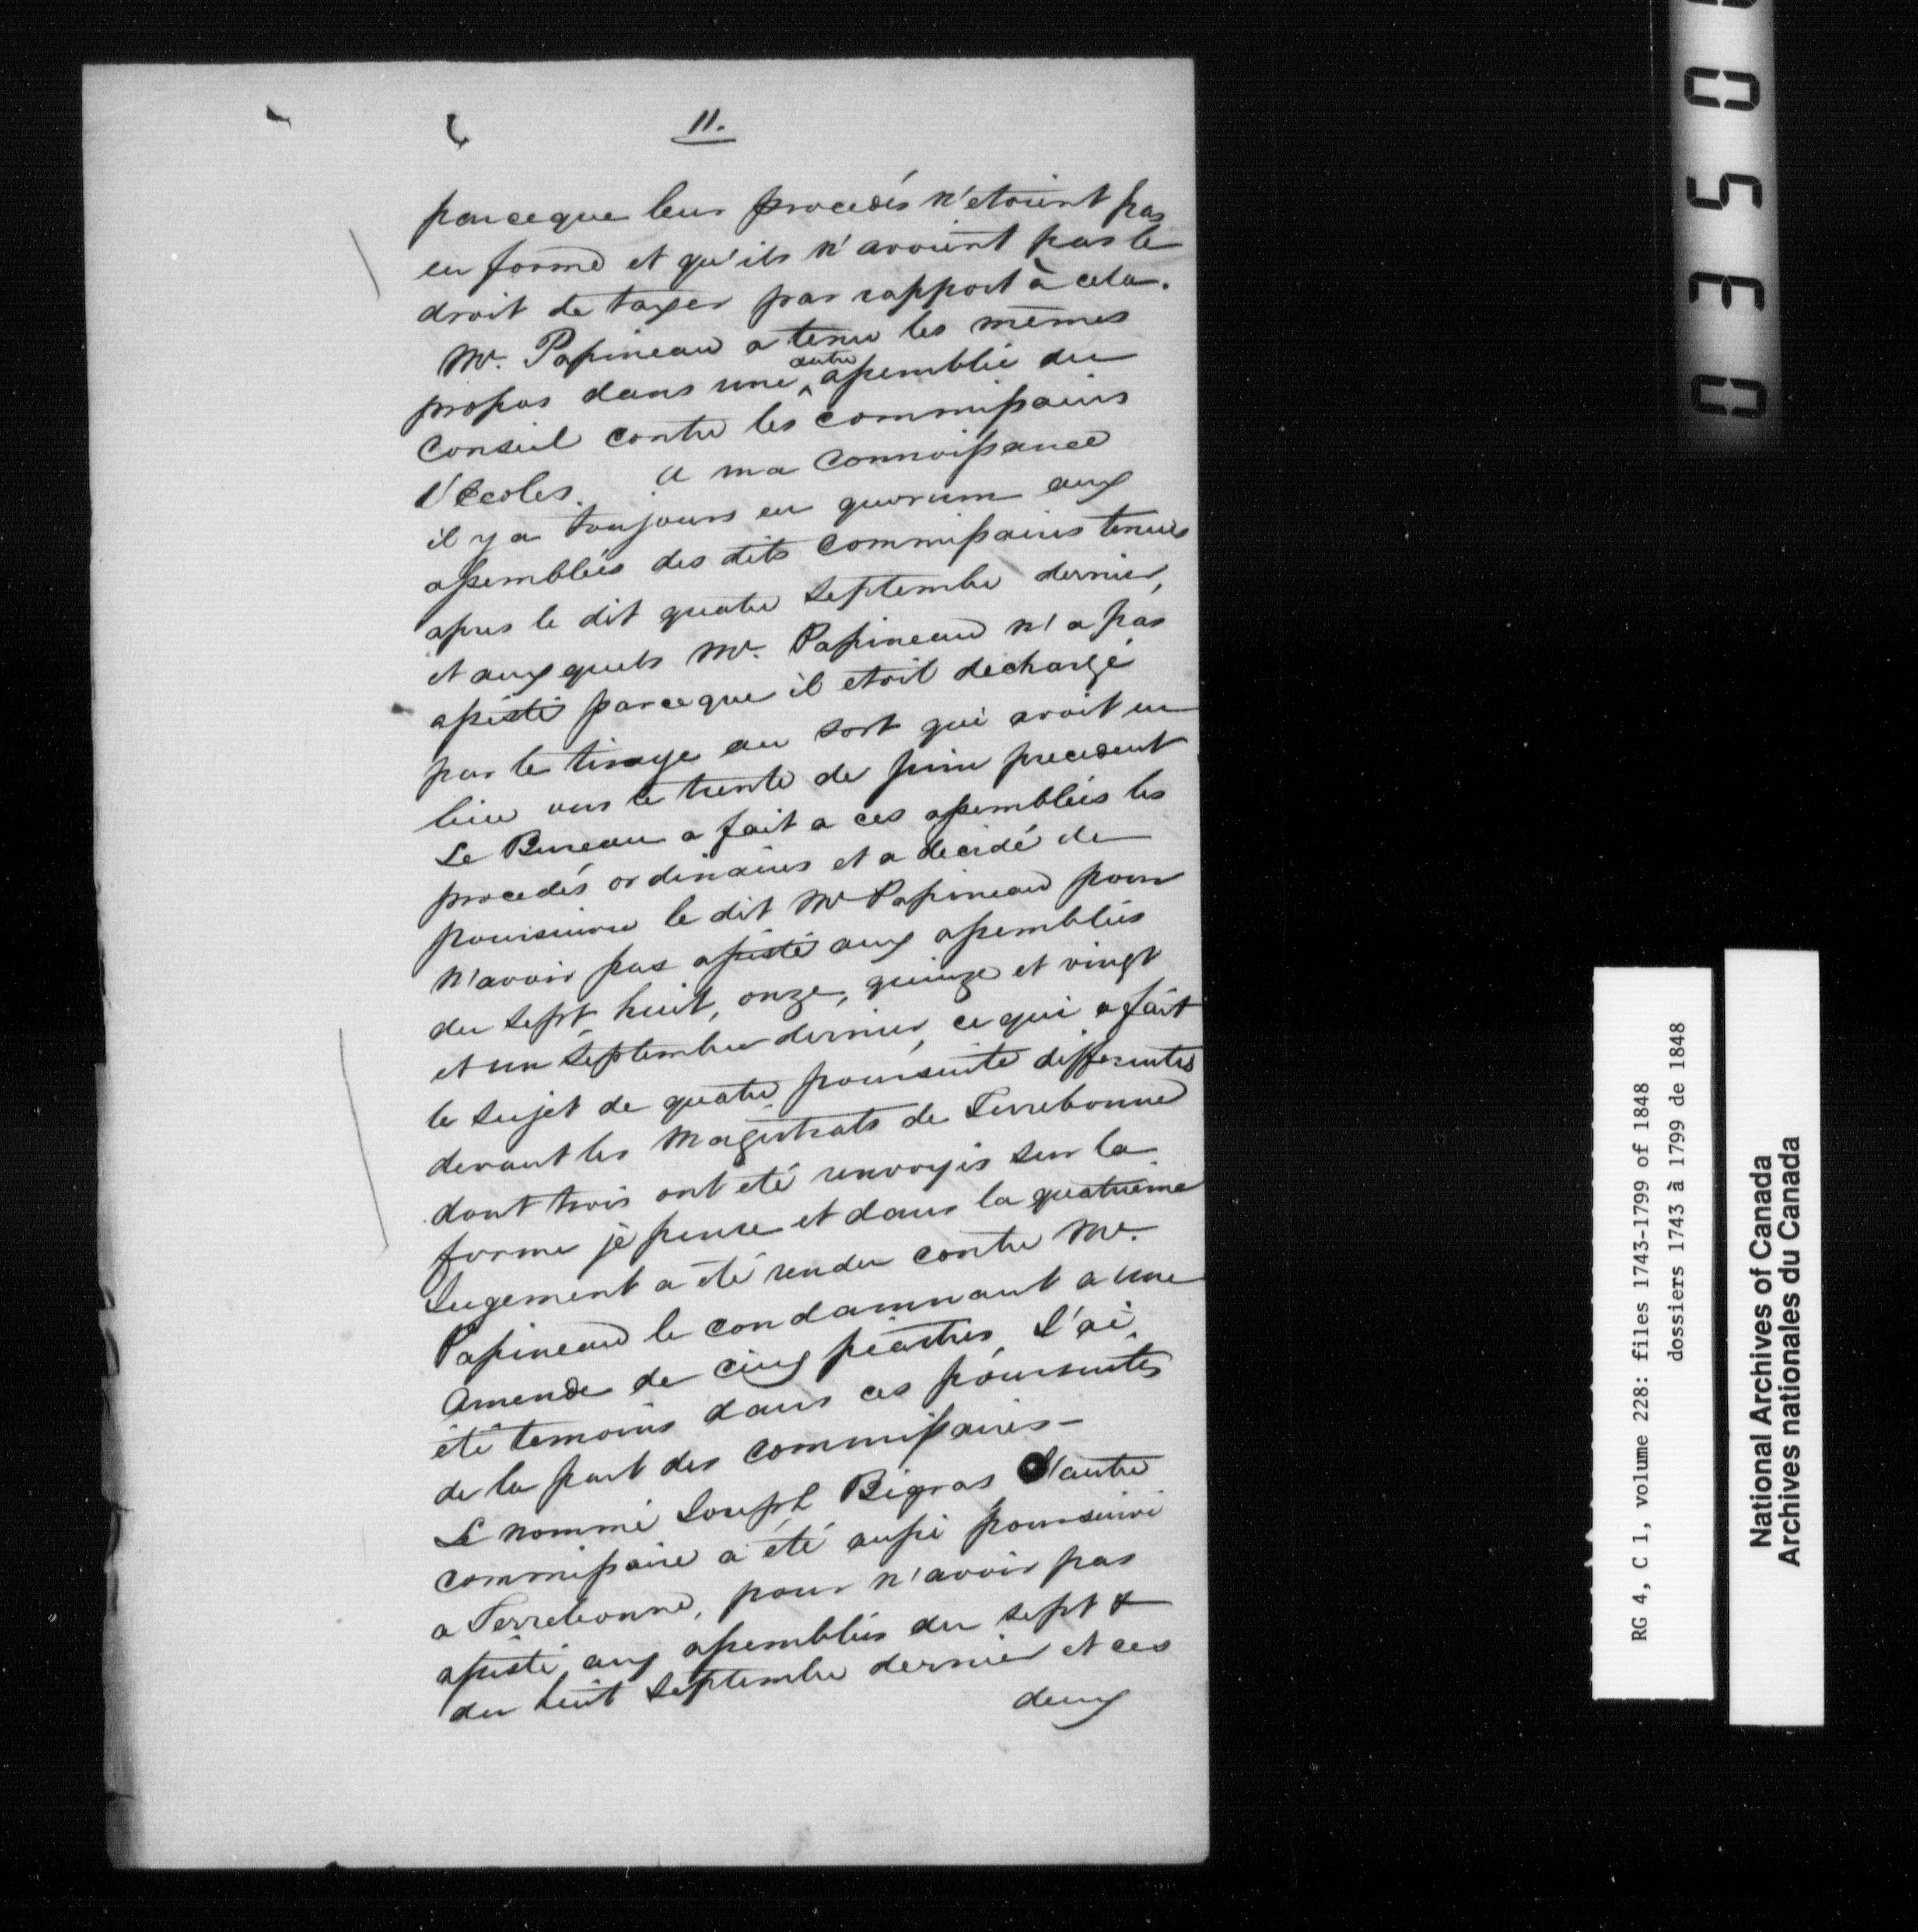 11.
parceque leur procedés n'etoient pas
en forme et qu'ils n'avoient pas le
droit de taxer par rapport à cela.
Mr. Papineau a tenu les mêmes
propos dans une autre assemblée du
Conseil contre les commissaires
d'Ecoles. A ma connoissance
il y a toujours eu quorum aux
assemblées des dits Commissaires tenues
apres le dit quatre Septembre dernier,
et auxquels Mr. Papineau n'a pas
assisté parceque il etoit dechargé
par le tirage au sort qui avoit eu
lieu vers le trente de juin precedent
Le Bureau a fait a ces assemblées les
procedés ordinaires et a decidé de
poursuivre le dit Mr Papineau pour
n'avoir pas assisté aux assemblées
du sept, huit, onze, quinze et vingt
et un Septembre dernier, ce qui a fait
le sujet de quatre poursuite differentes
devant les Magistrats de Terrebonne
dont trois ont eté renvoyés sur la
forme je pense et dans la quatrieme
Jugement a été rendu contre Mr.
Papineau le condamnant a une
Amende de cinq piastres J'ai
été temoins dans ces poursuites
de la part des commissaires -
Le nommé Joseph Bigras l'autre
commissaire a été aussi poursuivi
a Terrebonne, pour n'avoir pas
assisté aux assemblées du sept &
du huit Septembre dernier et ces
deux
0350
RG 4, C 1, volume 228: files 1743-1799 of 1848
dossiers 1743 à 1799 de 1848
National Archives of Canada
Archives nationales du Canada